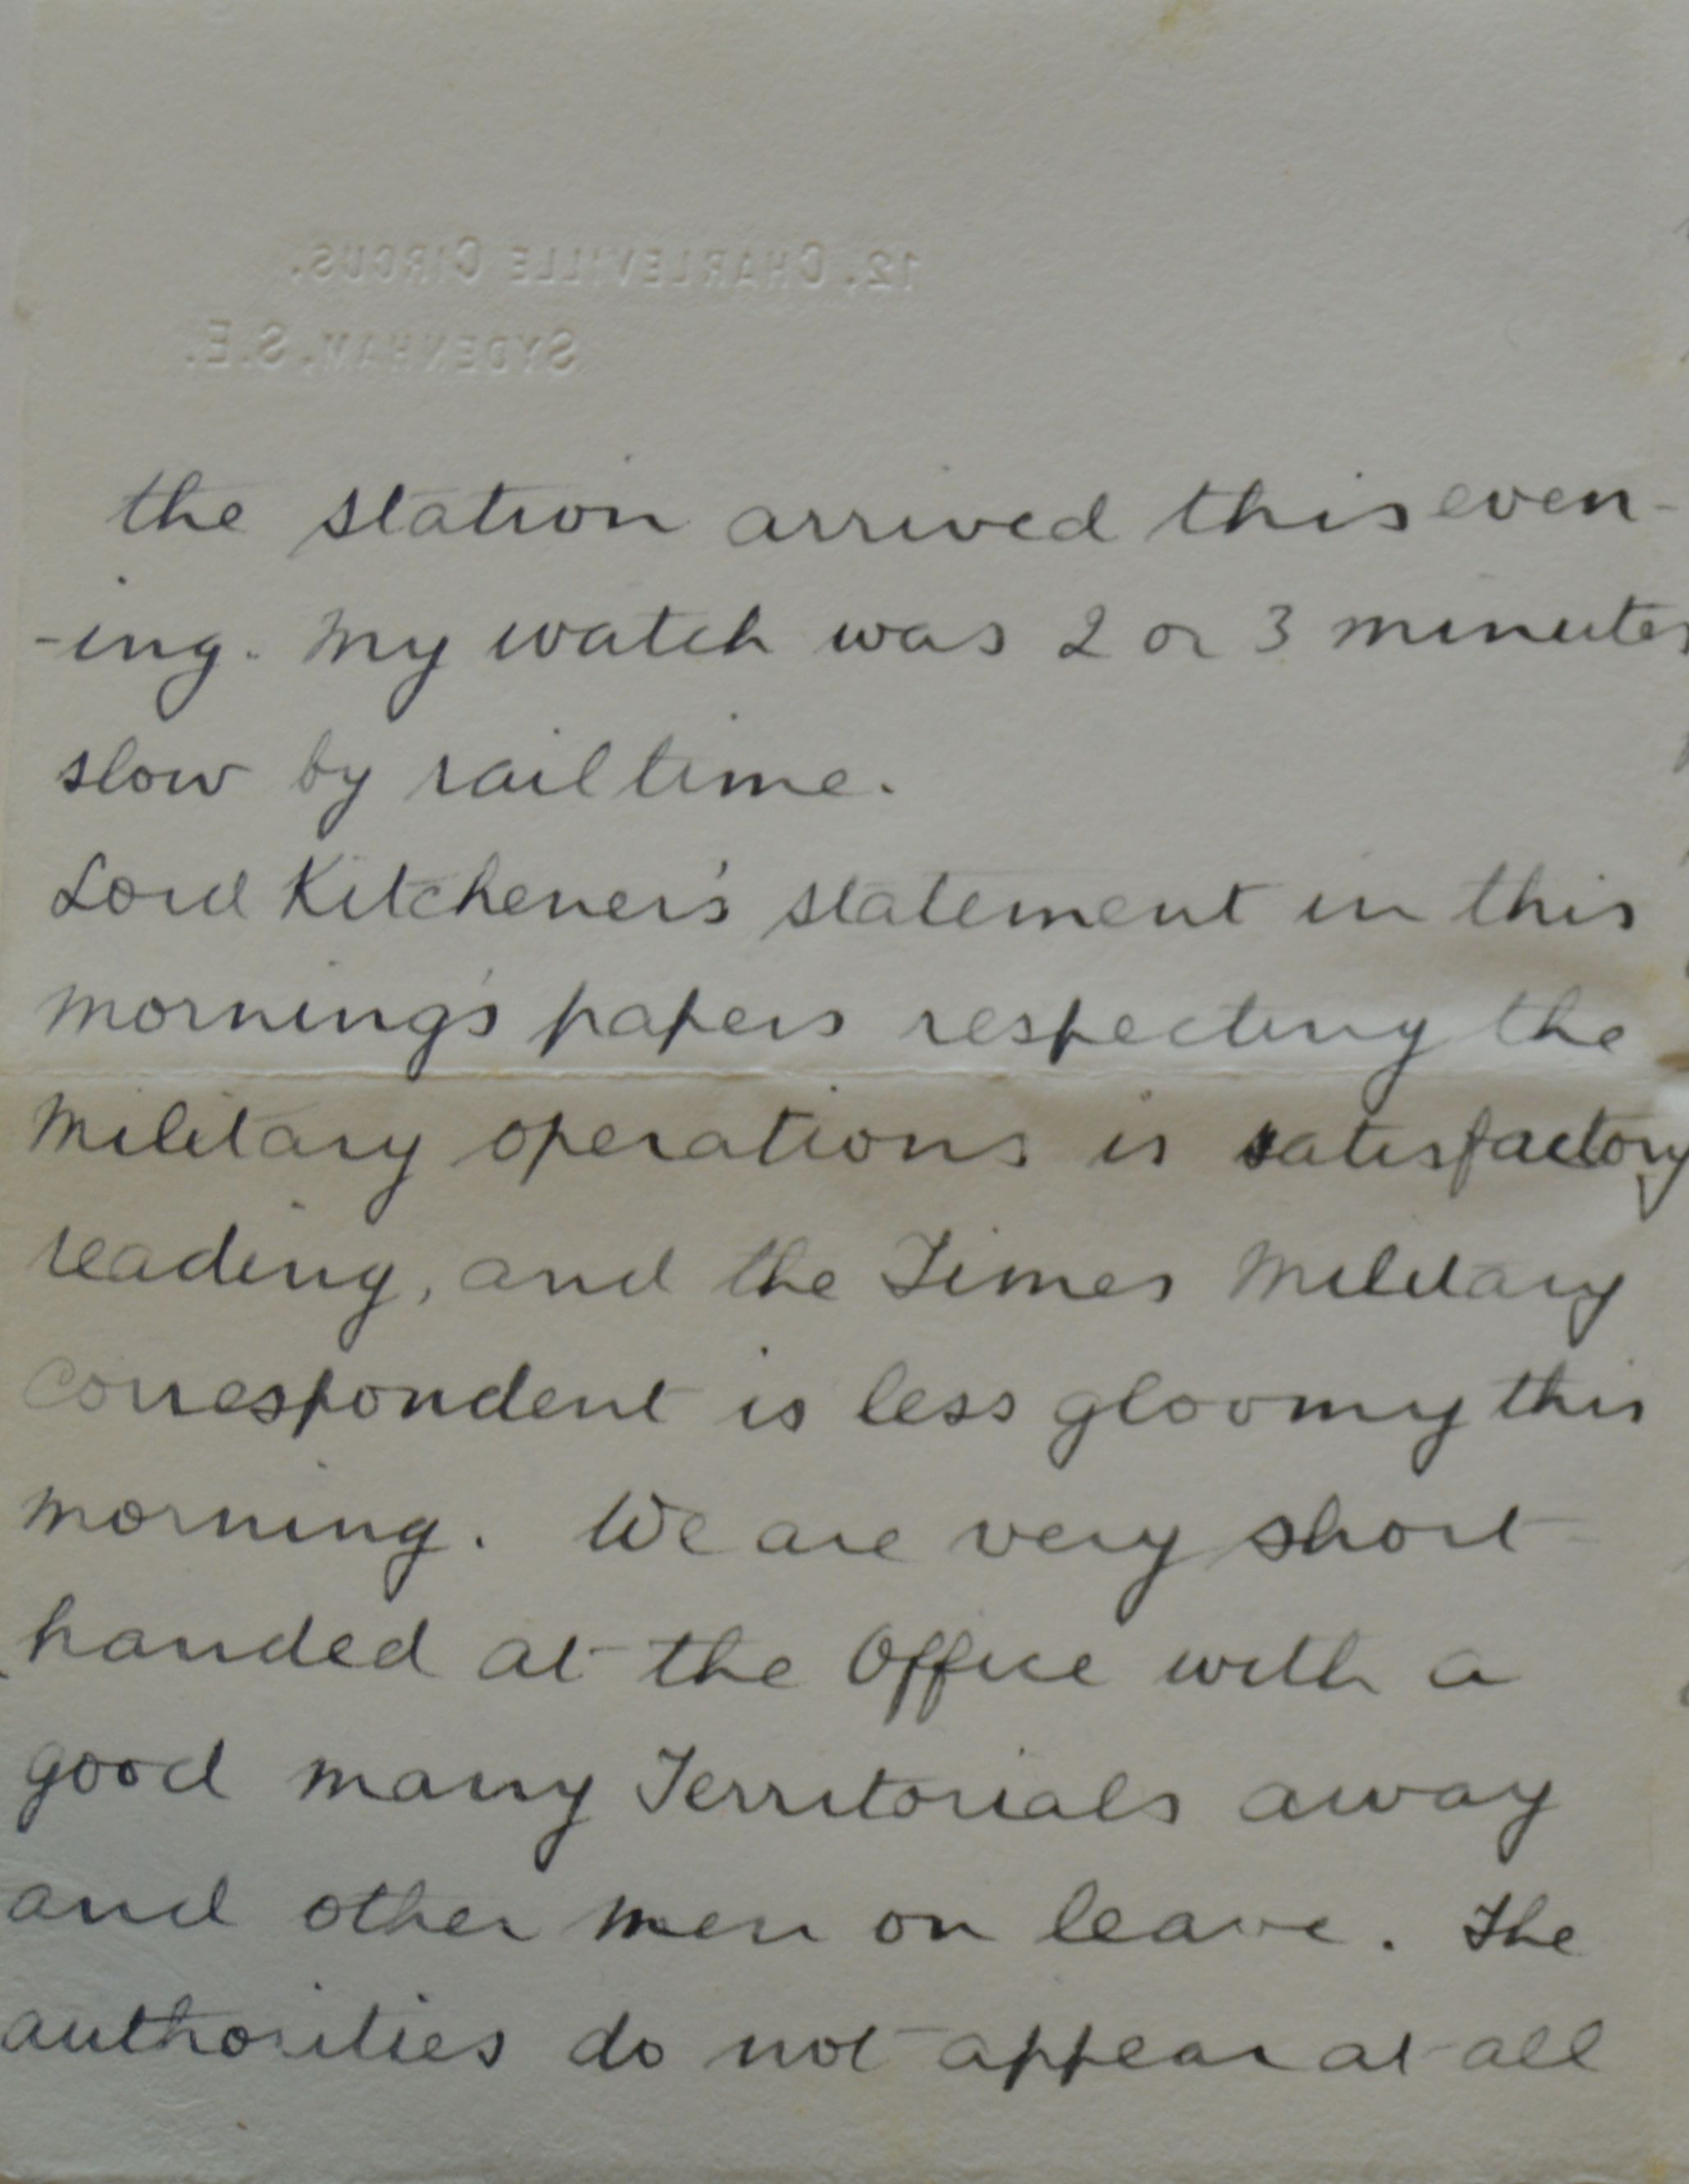 12, CHARLEVILLE CIRCUS,
SYDENHAM, S.E.
the station arrived this even-
-ing. My watch was 2 or 3 minutes
slow by rail time.
Lord Kitchener's statement in this
morning's papers respecting the
Military operations is satisfactory
reading, and the Times Military
correspondent is less gloomy this
morning. We are very short-
handed at the Office with a
good many Territorials away
and other men on leave. The
authorities do not appear at all